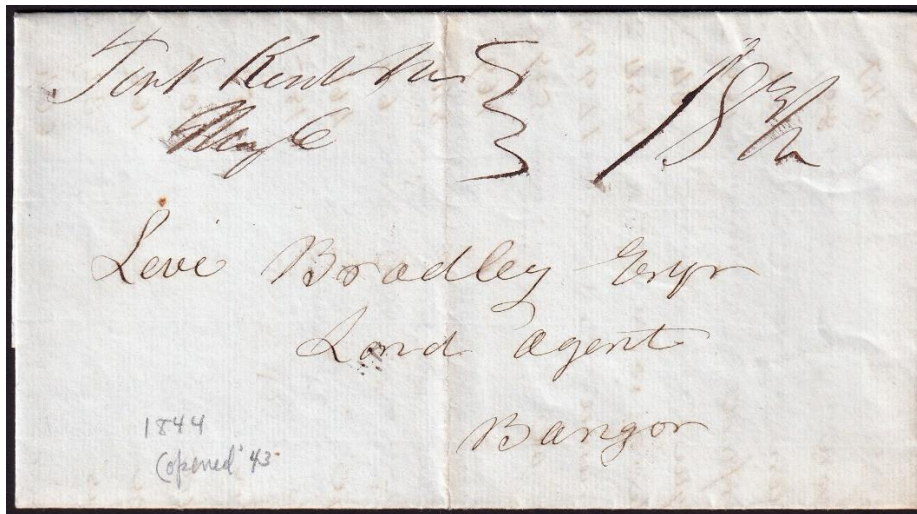 Fort Kent Me 18 3/4
May 6
Levi Bradley Esqr
Land Agent
Bangor
1844
(opened '43